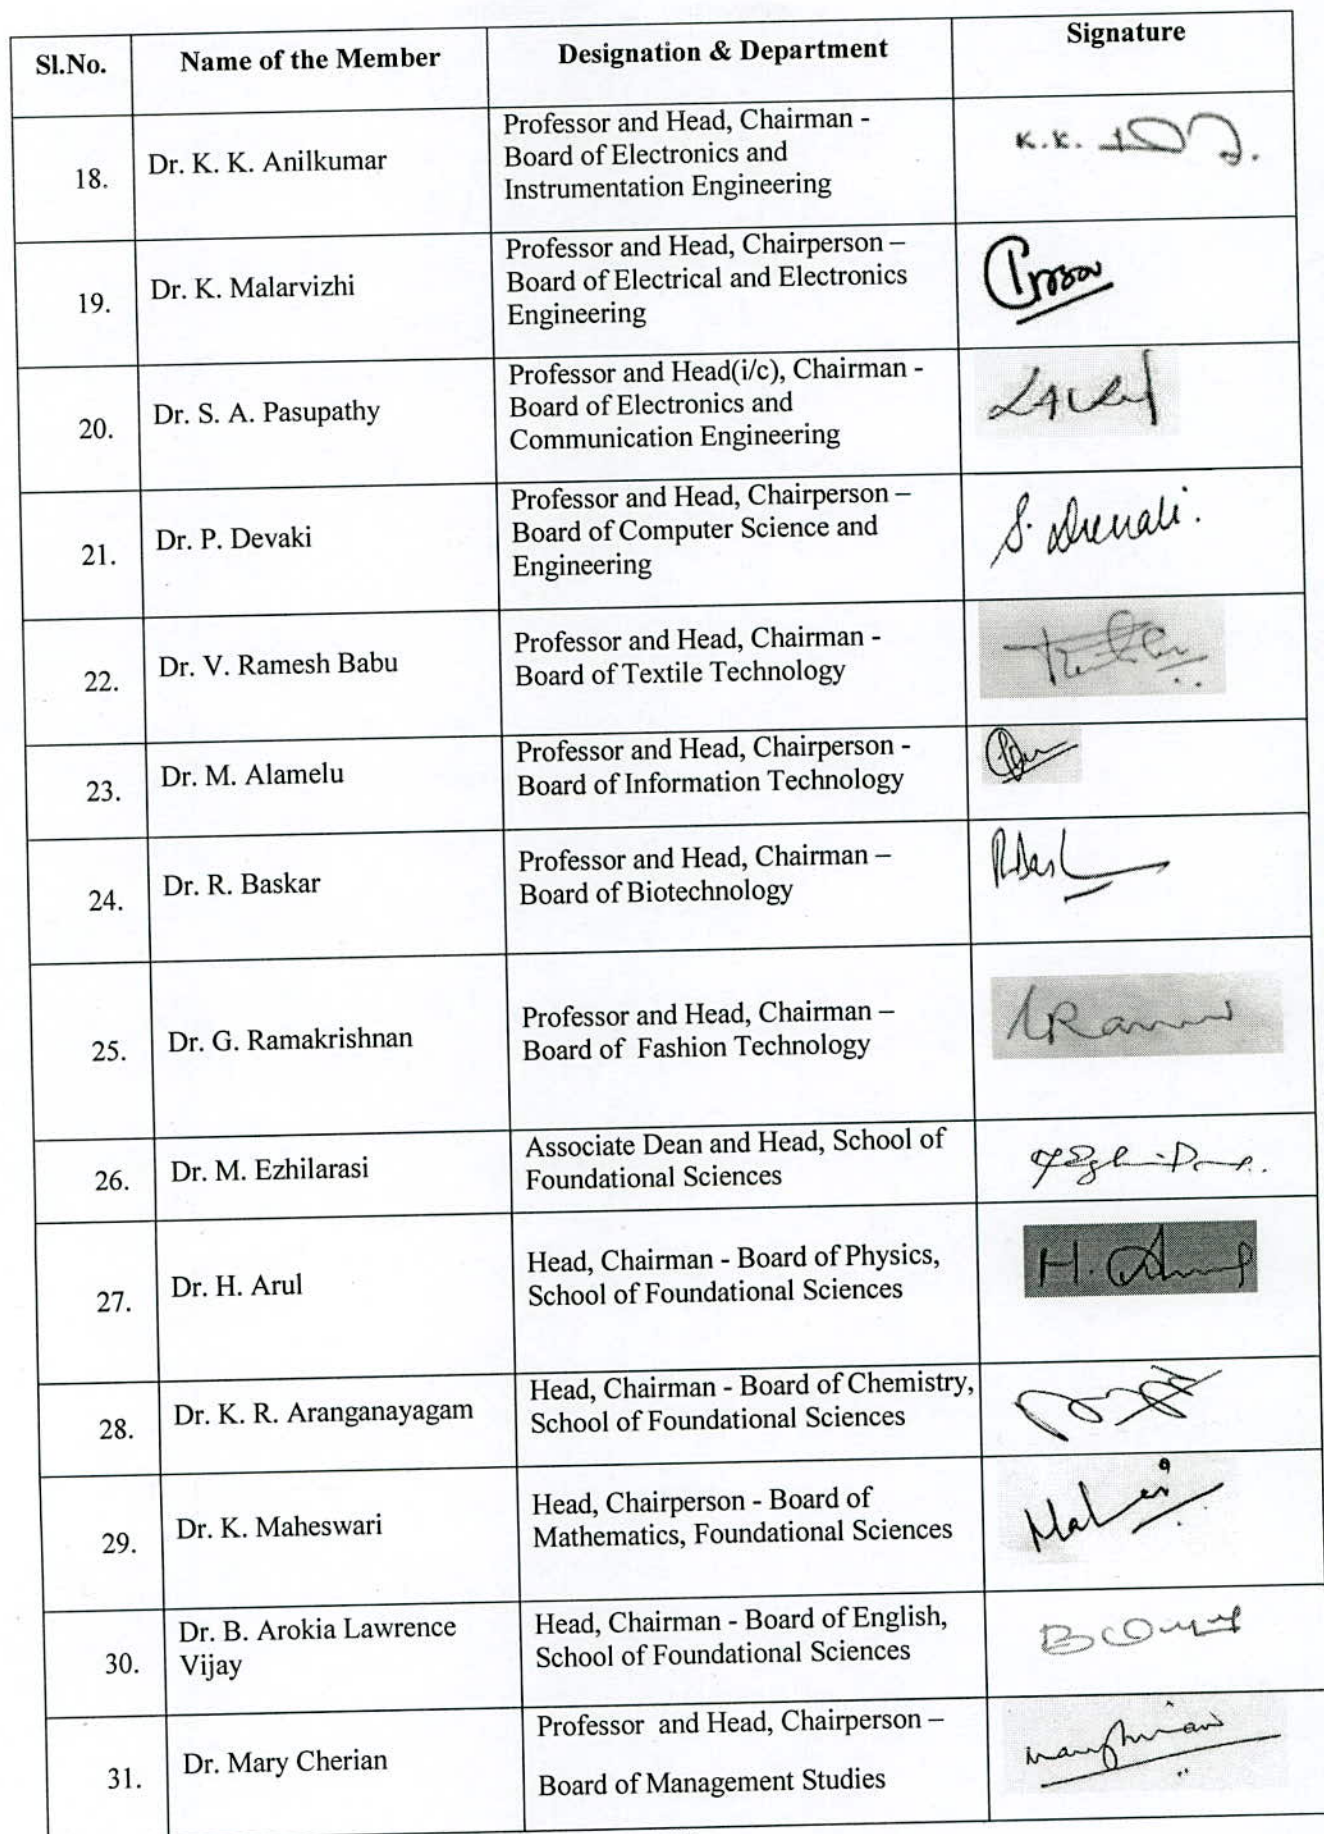 Sl.No. Name of the Member Designation & Department Signature
18. Dr. K. K. Anilkumar
Professor and Head, Chairman -
Board of Electronics and
Instrumentation Engineering
K.K.
19. Dr. K. Malarvizhi
Professor and Head, Chairperson –
Board of Electrical and Electronics
Engineering
20. Dr. S. A. Pasupathy
Professor and Head(i/c), Chairman -
Board of Electronics and
Communication Engineering
21. Dr. P. Devaki
Professor and Head, Chairperson –
Board of Computer Science and
Engineering
22. Dr. V. Ramesh Babu
Professor and Head, Chairman -
Board of Textile Technology
23. Dr. M. Alamelu
Professor and Head, Chairperson -
Board of Information Technology
24. Dr. R. Baskar
Professor and Head, Chairman –
Board of Biotechnology
25. Dr. G. Ramakrishnan
Professor and Head, Chairman –
Board of Fashion Technology
26. Dr. M. Ezhilarasi
Associate Dean and Head, School of
Foundational Sciences
27. Dr. H. Arul
Head, Chairman - Board of Physics,
School of Foundational Sciences
H.
28. Dr. K. R. Aranganayagam
Head, Chairman - Board of Chemistry,
School of Foundational Sciences
29. Dr. K. Maheswari
Head, Chairperson - Board of
Mathematics, Foundational Sciences
30. Dr. B. Arokia Lawrence
Vijay
Head, Chairman - Board of English,
School of Foundational Sciences
31. Dr. Mary Cherian
Professor and Head, Chairperson –
Board of Management Studies